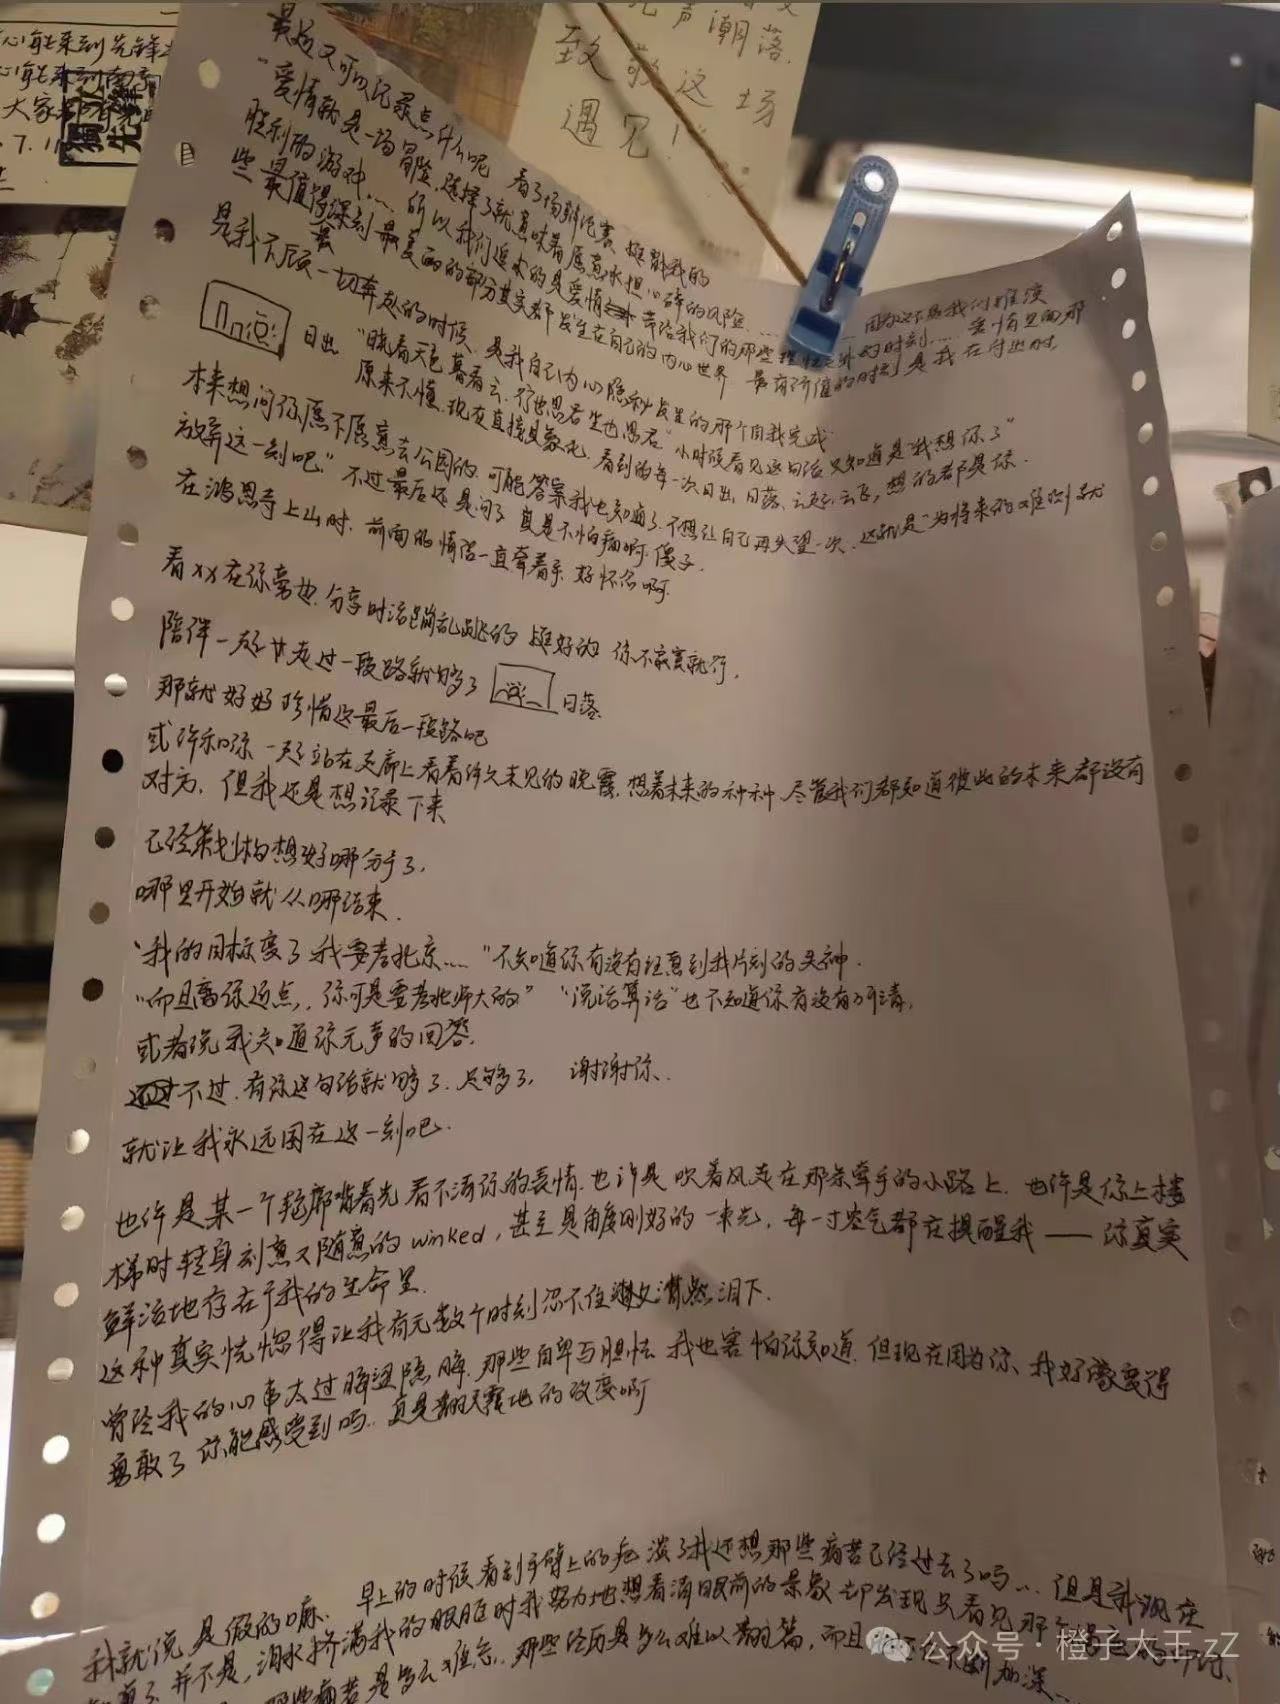 潮落.
致敬这一场
遇见！
最近又可以记录点什么呢 看了场辩论赛 挺戳我的
“爱情就是一场冒险，选择了就意味着愿意承担心碎的风险……
胜利的游戏…… 所以我们追求的是爱情带给我们的那些 时刻…… 爱情里面那
些最值得深刻最美丽的部分其实都发生在自己的内心世界 最有价值的时刻是我在付出时，
是我不顾一切奔赴的时候，是我自己内心隐秘发生的那个自我完成”
日出 “晓看天色暮看云，行也思君坐也思君” 小时候看见这句话只知道是“我想你了”
原来不懂，现在直接具象化，看到的每一次日出，日落，云起，云飞，想的都是你.
本来想问你愿不愿意去公园的，可能答案我也知道了，不想让自己再失望一次，这就是“为将来的难
放弃这一刻吧” 不过最后还是问了 真是不怕痛啊，傻子.
在鸿恩寺上山时，前面的情侣一直牵着手，好怀念啊.
看xx在你旁边，分享时活蹦乱跳的 挺好的 你不寂寞就行，
陪伴一起共走过一段路就够了 日落
那就好好珍惜这最后一段路吧
或许和你一起站在走廊上看着许久未见的晚霞，想着未来的种种，尽管我们都知道彼此的未来都没有
对方，但我还是想记录下来
已经策划构想好哪分手了，
哪里开始就从哪结束.
“我的目标变了 我要考北京……” 不知道你有没有注意到我片刻的失神.
“而且离你近点，你可是要考北师大的” “说话算话” 也不知道你有没有听清，
或者说我知道你无声的回答，
不过，有你这句话就够了，足够了， 谢谢你.
就让我永远困在这一刻吧.
也许是某一个轮廓背着光看不清你的表情，也许是吹着风走在那条牵手的小路上，也许是你上楼
梯时转身刻意又随意的winked，甚至是角度刚好的一束光，每一寸空气都在提醒我——你真实
鲜活地存在于我的生命里.
这种真实恍惚得让我有无数个时刻忍不住潸然泪下.
曾经我的心事太过晦涩隐晦，那些自卑与胆怯 我也害怕你知道，但现在因为你，我好像变得
勇敢了 你能感受到吗，真是翻天覆地的改变啊
早上的时候看到手臂上的疤 淡了我还想那些病苦已经过去了吗… 但是我现在
我就说是假的嘛， 泪水挤满我的眼眶时我努力地想看清眼前的景象 却发现只看见那个
并不是， 那些病苦是多么难忘，那些经历是多么难以翻篇，而且 不断加深…
公众号·橙子大王zZ